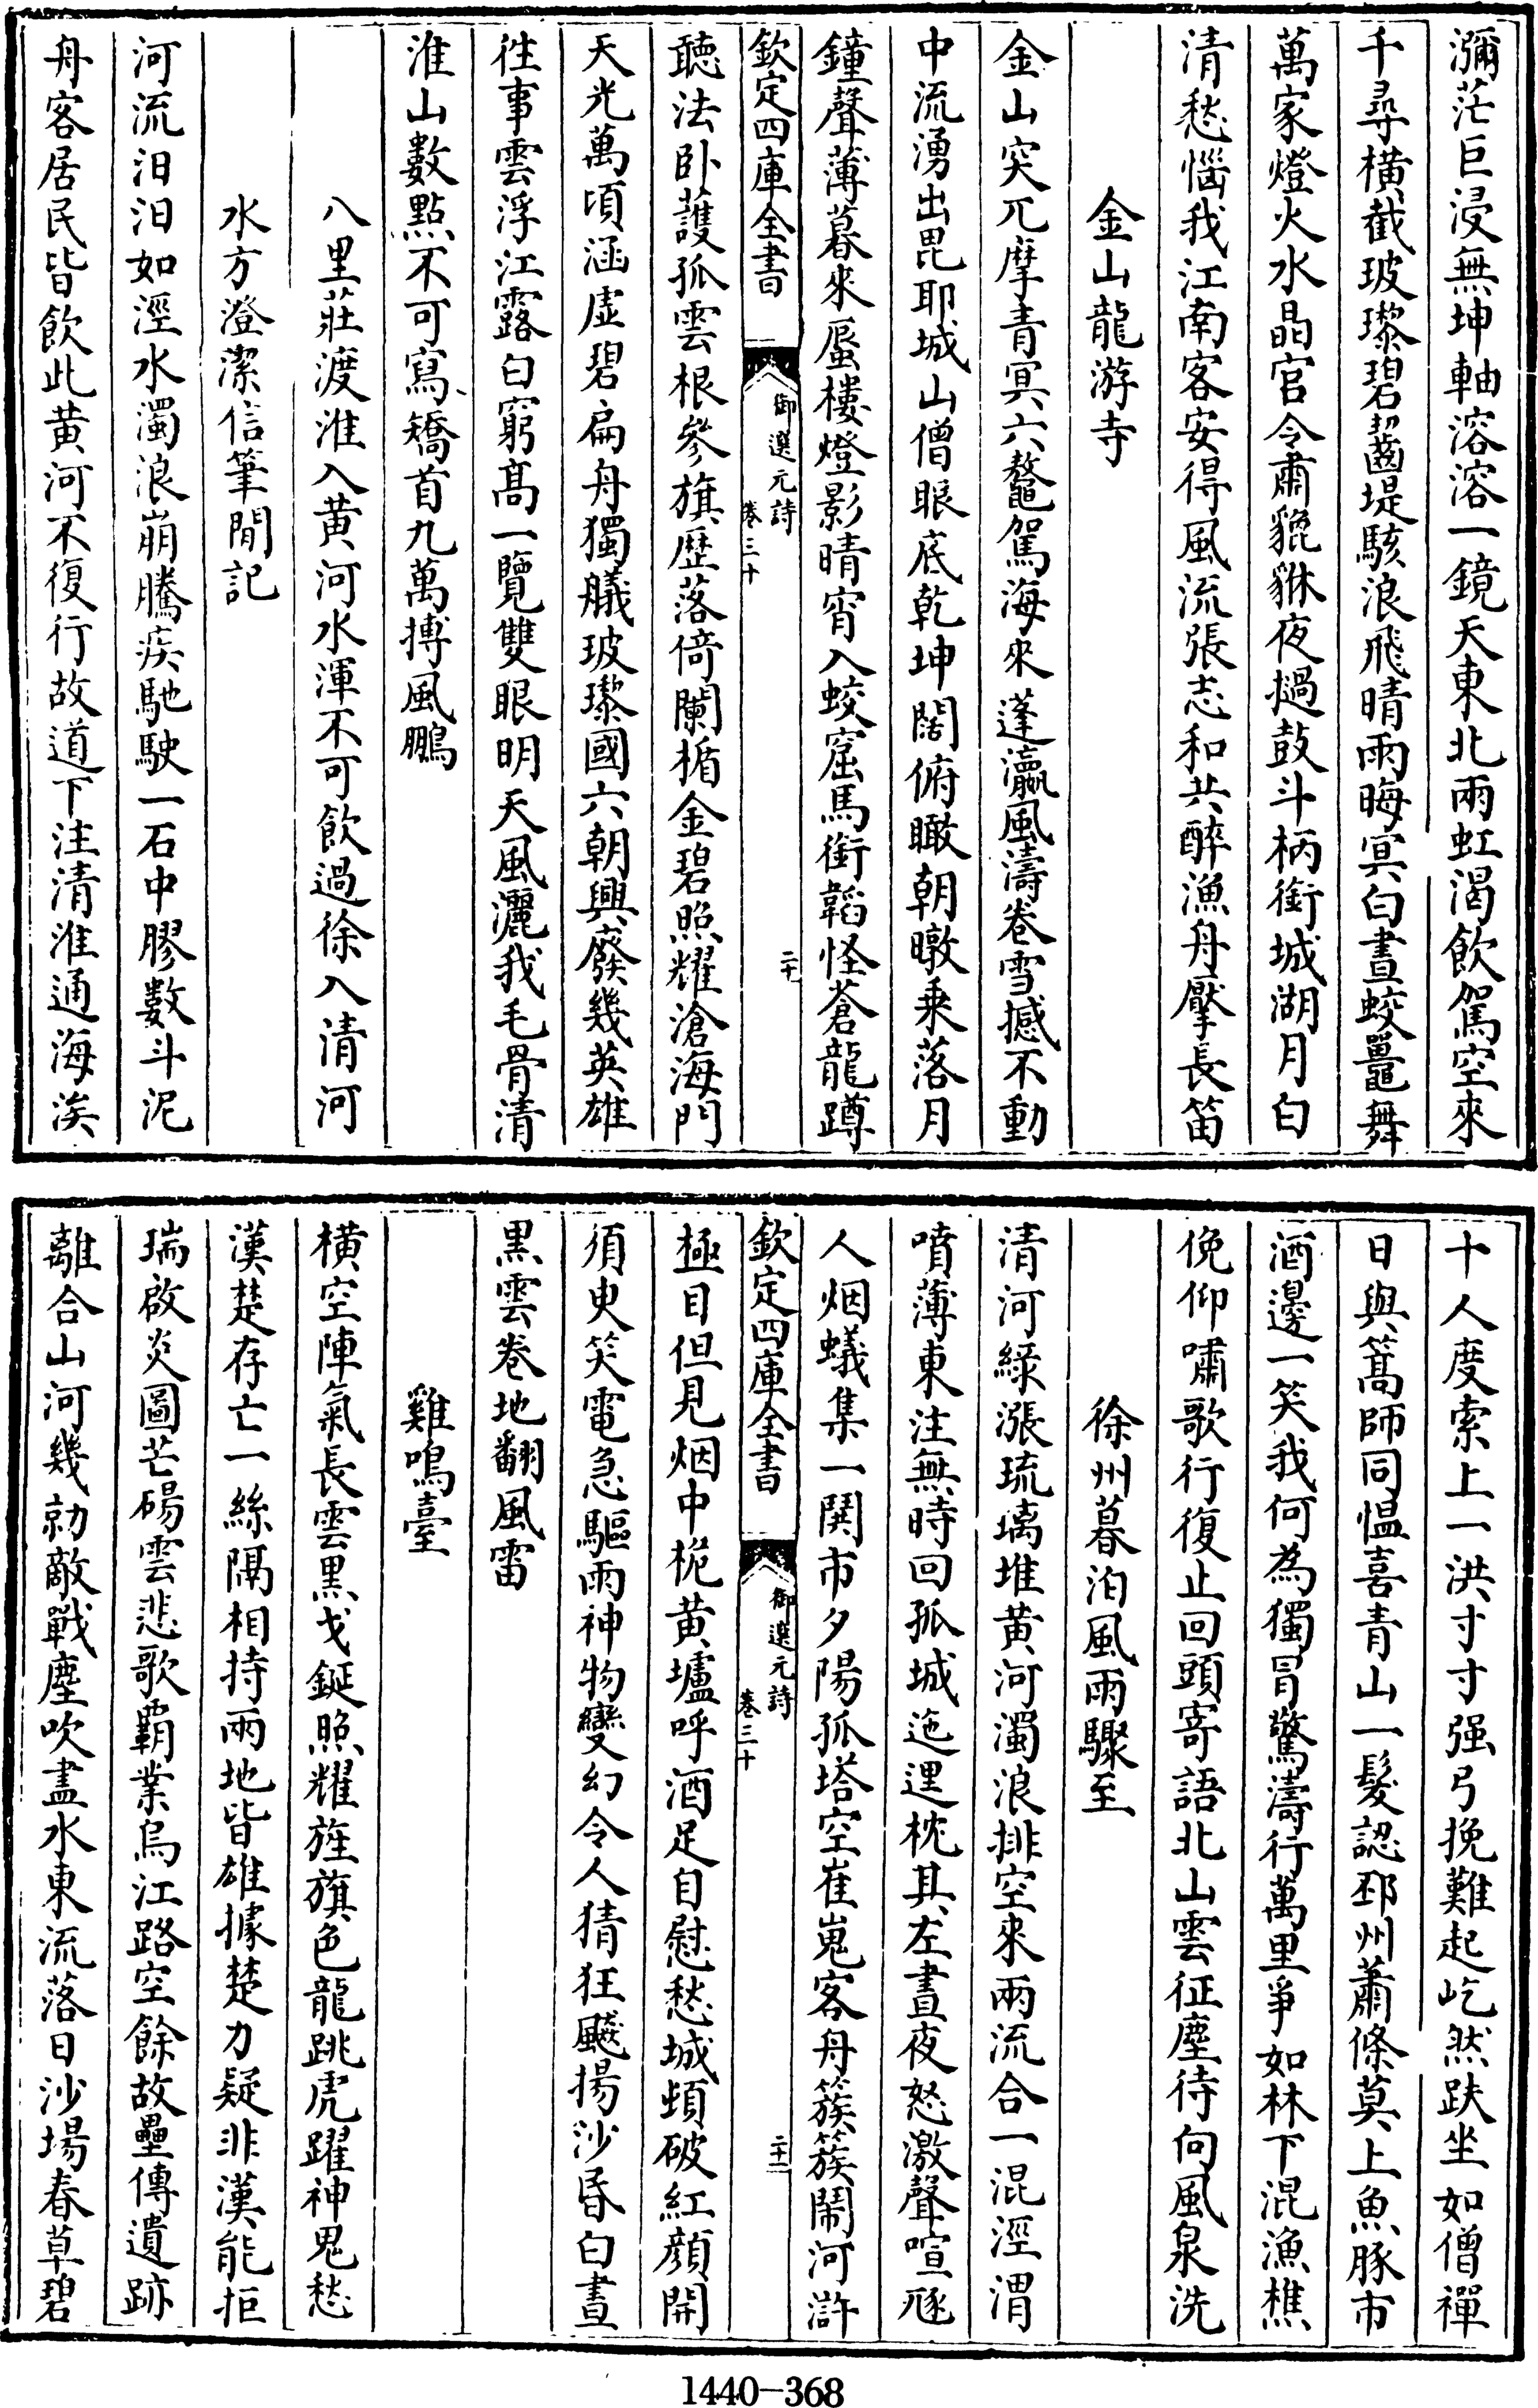 瀰茫巨浸無坤軸溶溶一鏡天東北兩虹渴飲駕空來
千尋橫截玻瓈碧齧堤駭浪飛晴雨晦冥白晝蛟鼉舞
萬家燈火水晶宫令肅貔貅夜撾鼓斗柄銜城湖月白
清愁惱我江南客安得風流張志和共醉漁舟擪長笛
金山龍游寺
金山突兀摩青冥六鼇駕海來蓬瀛風濤卷雪撼不動
中流湧出毘耶城山僧眼底乾坤闊俯瞰朝暾乗落月
鐘聲薄暮來蜃樓燈影晴宵入蛟窟馬銜韜怪蒼龍蹲
欽定四庫全書
御選元詩
卷三十
二十
聽法卧護孤雲根參旗歴落倚闌楯金碧照耀滄海門
天光萬頃涵虛碧扁舟獨艤玻瓈國六朝興廢幾英雄
徃事雲浮江露白窮髙一覽雙眼明天風灑我毛骨清
淮山數點不可寫矯首九萬搏風鵬
八里莊渡淮入黄河水渾不可飲過徐入清河
水方澄潔信筆閒記
河流汨汨如涇水濁浪崩騰疾馳駛一石中膠數斗泥
舟客居民皆飲此黄河不復行故道下注清淮通海涘
十人度索上一洪寸寸强弓挽難起屹然趺坐如僧禪
日與篙師同愠喜青山一髮認邳州蕭條莫上魚豚市
酒邊一笑我何為獨冒驚濤行萬里爭如林下混漁樵
俛仰嘯歌行復止回頭寄語北山雲征塵待向風泉洗
徐州暮泊風雨驟至
清河緑漲琉璃堆黄河濁浪排空來兩流合一混涇渭
噴薄東注無時回孤城迤逦枕其左晝夜怒激聲喧豗
人烟蟻集一鬨市夕陽孤塔空崔嵬客舟簇簇鬧河滸
欽定四庫全書
御選元詩
卷三十
二十一
極目但見烟中桅黄壚呼酒足自慰愁城頃破紅顔開
須臾笑電急驅雨神物變幻令人猜狂飈揚沙昏白晝
黒雲卷地翻風雷
雞鳴臺
横空陣氣長雲黒戈鋋照耀旌旗色龍跳虎躍神鬼愁
漢楚存亡一絲隔相持兩地皆雄據楚力疑非漢能拒
瑞啟炎圖芒碭雲悲歌覇業烏江路空餘故壘傳遺跡
離合山河幾勍敵戰塵吹盡水東流落日沙場春草碧
1440-368